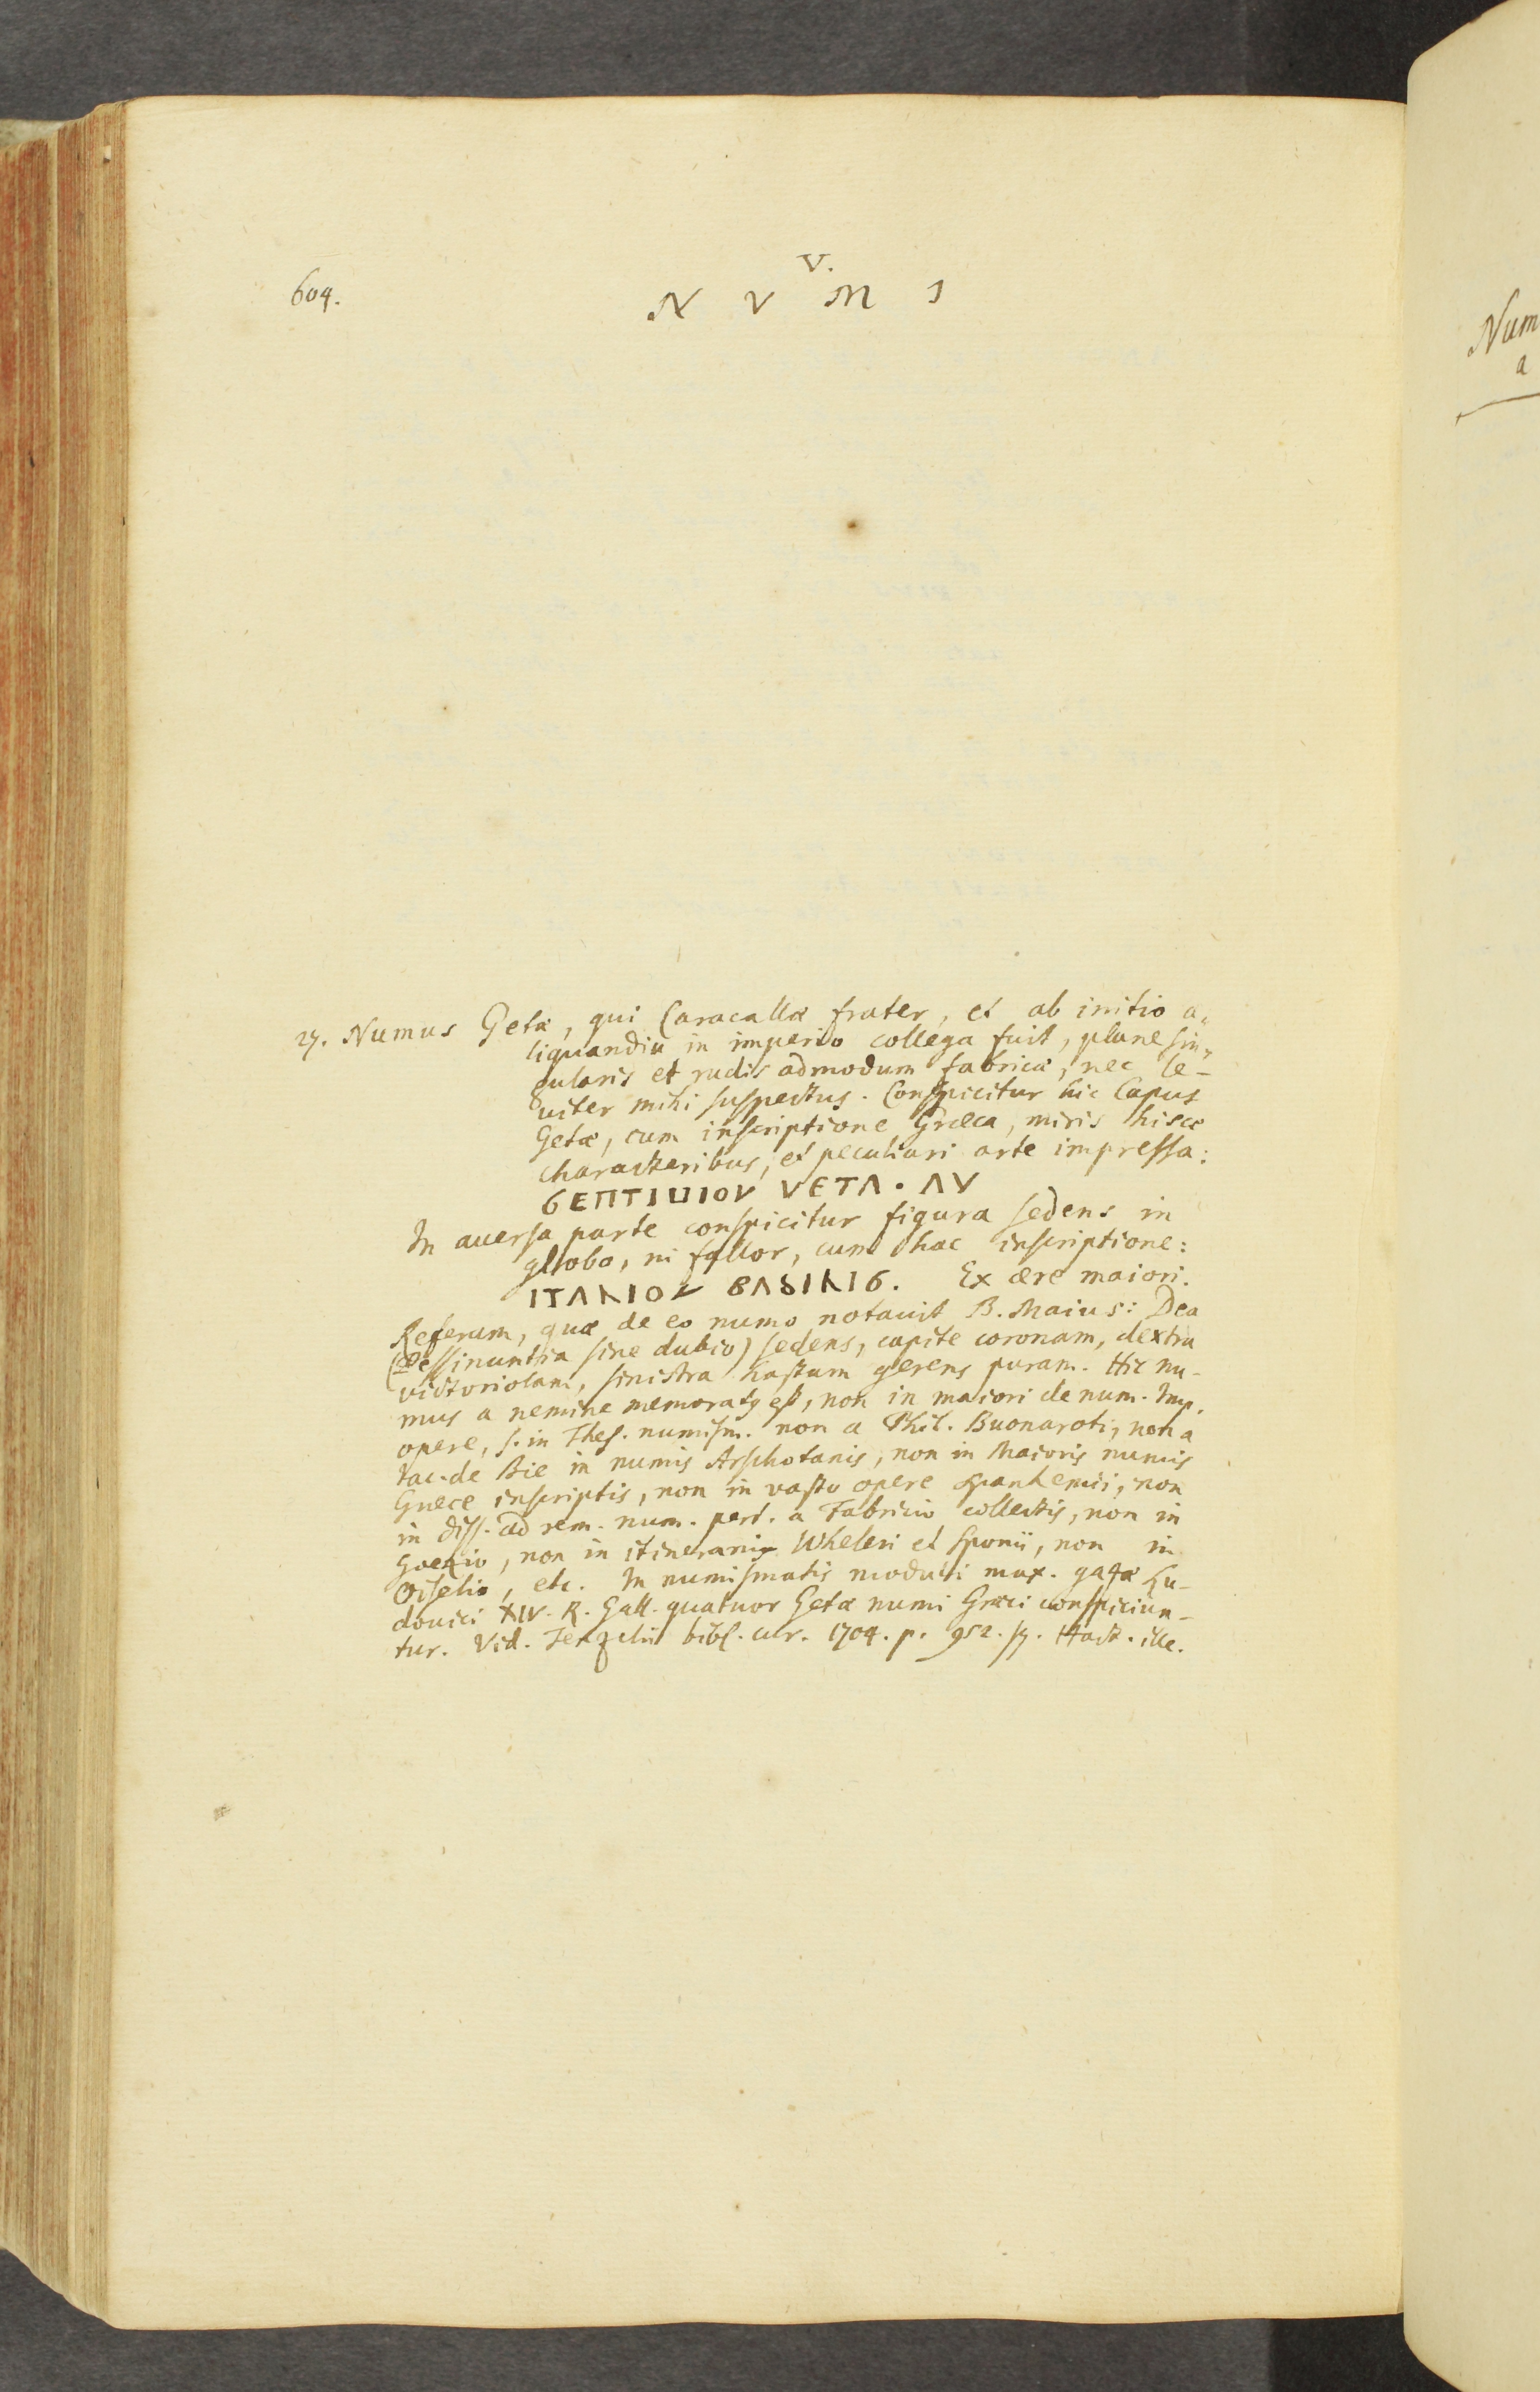 604.
V.
N V M I
27. Numus Getæ, qui Caracallæ frater, et ab initio a-
liquandiu in imperio collega fuit, plane sin-
gularis et rudis admodum fabricæ, nec le-
uiter mihi suspectus. Conspicitur hic Capus
Getæ, cum inscriptione Græca, miris hisce
charaĉteribus, et peculiari arte impressa:
ϬΕΠΤΙЦΙΟV VETΛ · ΛV
In auersa parte conspicitur figura sedens in
globo, ni fallor, cum hac inscriptione:
Ex ære maiori.
Referam, quæ de eo numo notauit B. Maius: Dea
(Pessinuntia sine dubio) sedens, capite coronam, dextra
victoriolam, sinistra hastam gerens puram. Hic nu-
mus a nemine memoratq est, non in maiori de num. Imp.
opere, s. in Thes. numism. non a Phil. Buonaroti, non a
Iac. de Bie in numis Arschotanis, non in Maioris numis
Græce inscriptis, non in vasto opere Spanhemii, non
in diss. ad rem. num. pert. a Fabricio collectis, non in
non in itinerariis Wheleri et Sponii, non in
Oiselio, etc. In numismatis moduli max. gazæ Lu-
douici XIV. R. Gall. quatuor Getæ numi Græci conspiciun-
tur. Vid. Tenzelii bibl. cur. 1704. p. 952. sq. Hact. ille.
Num
a